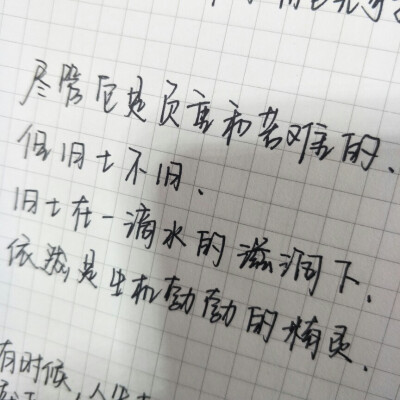 尽管它是负重和苦难的、
但旧土不旧、
旧土在一滴水的滋润下、
依然是生机勃勃的精灵、
有时候